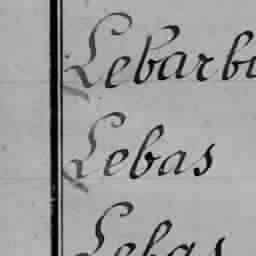 Lebarbi
Lebas
Lebas